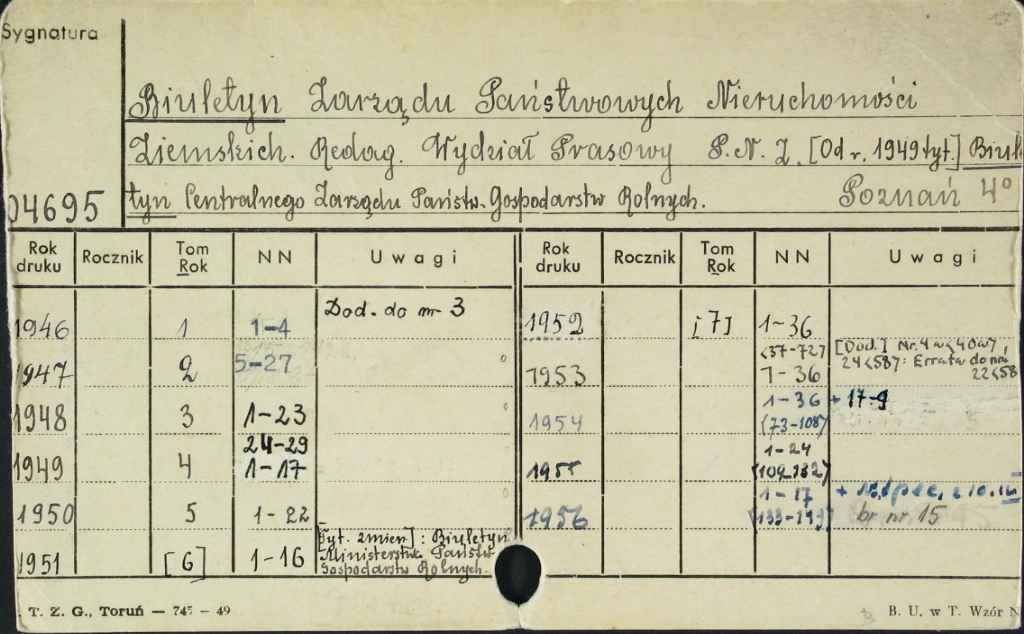 Sygnatura
Biuletyn Zarządu Państwowych Nieruchomości
Ziemskich. Redag. Wydział Prasowy P.N.Z. [Od r. 1949 tyt.] Biule
04695 tyn Centralnego Zarządu Państw. Gospodarstw Rolnych. Poznań 4°
Rok druku Rocznik Tom Rok NN Uwagi Rok druku Rocznik Tom Rok NN Uwagi
1946 1 1-4 Dod. do nr 3 1952 [7] 1-36
<37-72>
1947 2 5-27 1953 1-36 [Dod.] Nr. 4 24<58>: Errata do nru 22<58
1948 3 1-23 1-36 + 17-9
24-29 1954 <73-108>
1949 4 1-17 1955 1-24
<109-132>
1950 5 1-22 1956 1-17
<133-149> br nr 15
1951 [6] 1-16 [Tyt. zmien]: Biuletyn
Ministerstwa Państw.
Gospodarstw Rolnych.
T. Z. G., Toruń — 745 — 49 B. U. w T. Wzór N